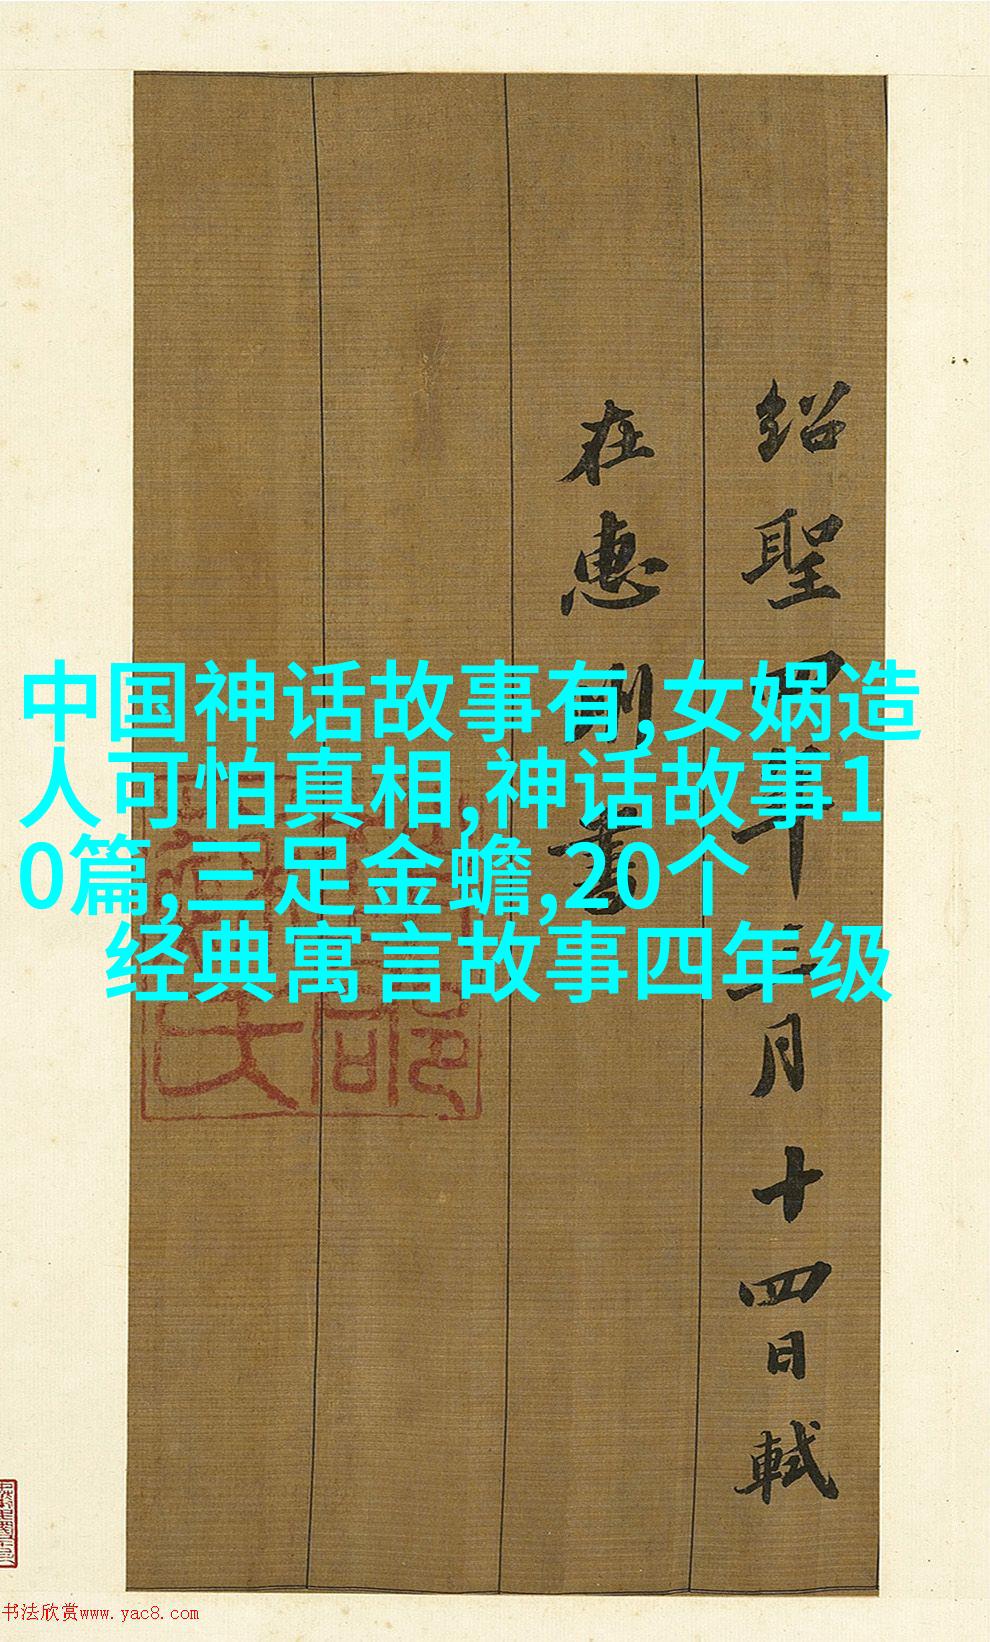 紹聖四年三月十四日軾
在惠州書
中国神话故事有,女娲造
人可怕真相,神话故事1
0篇,三足金蟾,20个
经典寓言故事四年级
书法欣赏www.yac8.com